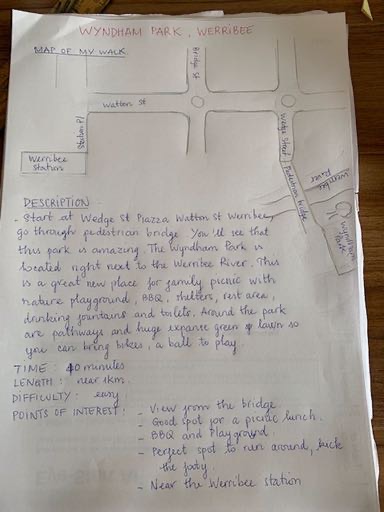 WYNDHAM PARK, WERRIBEE
MAP OF MY WALK
Bridge St
Watton St
Station Pl
Wedge Street
Werribee
Station
Pedestrian bridge
Werribee
River
Wyndham
Park
DESCRIPTION:
- Start at Wedge St Piazza Watton St Werribee,
go through pedestrian bridge. You'll see that
this park is amazing. The Wyndham Park is
located right next to the Werribee River. This
is a great new place for family picnic with
nature playground, BBQ, shelters, rest area,
drinking fountains and toilets. Around the park
are pathways and huge expanse green of lawn so
you can bring bikes, a ball to play.
TIME: 40 minutes
LENGTH: near 1km.
DIFFICULTY: easy
POINTS OF INTEREST: - View from the bridge
- Good spot for a picnic lunch.
- BBQ and Playground.
- Perfect spot to run around, kick
the footy.
- Near the Werribee station